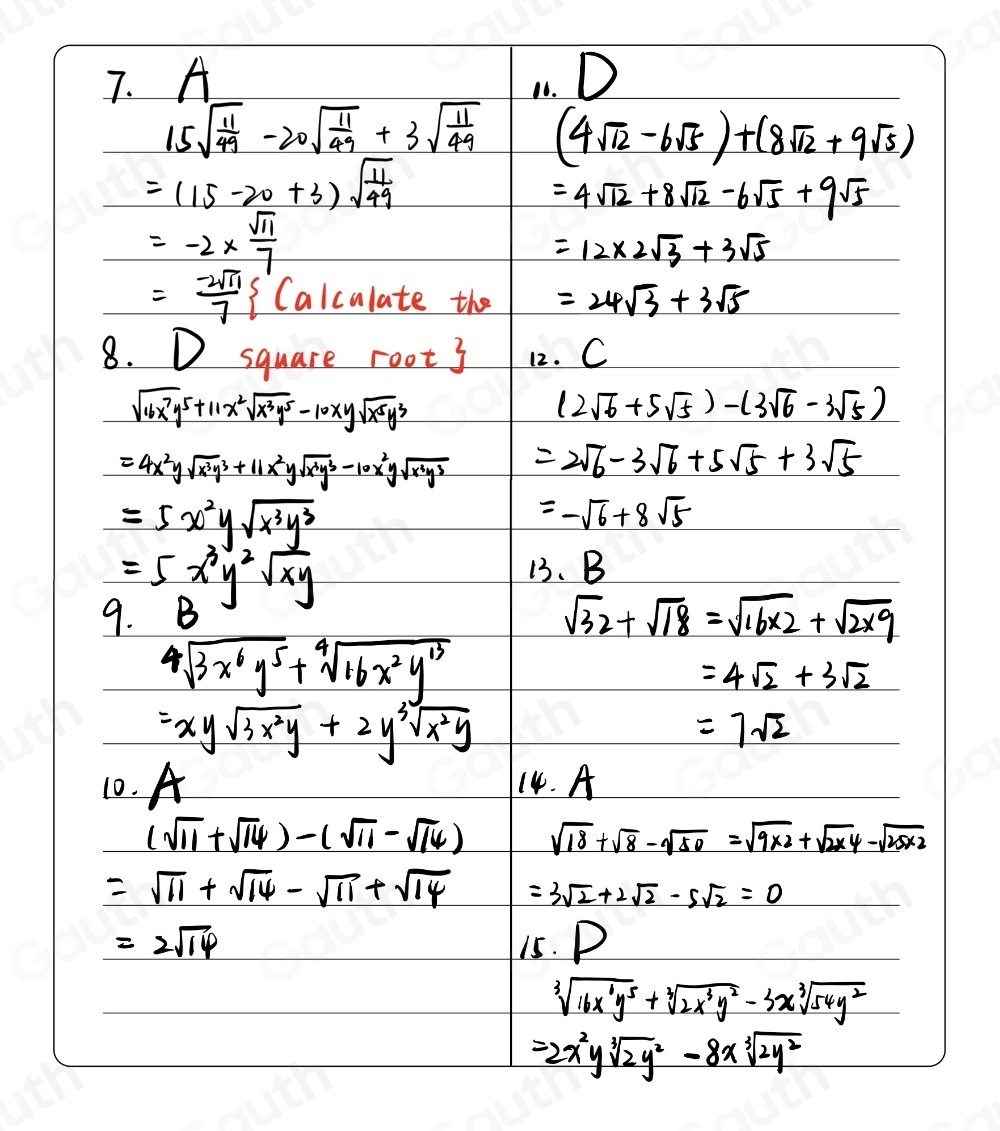 7. A
15√(11/49) -20√(11/49) + 3√(11/49)
= (15 -20 +3) √(11/49)
= -2 × √11/7
= -2√11/7 {Calculate the
square root}
8. D
√(16x⁷y⁵) + 11x²√(x³y⁵) - 10xy√(x⁵y³)
= 4x²y√(x³y³) + 11x²y√(x³y³) - 10x²y√(x³y³)
= 5x²y√(x³y³)
= 5x³y²√(xy)
9. B
4√(3x⁶y⁵) + ⁴√(16x²y¹³)
= xy√(3x²y) + 2y³√(x²y)
10. A
(√11 + √14) - (√11 - √14)
= √11 + √14 - √11 + √14
= 2√14
11. D
(4√12 - 6√5) + (8√12 + 9√5)
= 4√12 + 8√12 - 6√5 + 9√5
= 12×2√3 + 3√5
= 24√3 + 3√5
12. C
(2√6 + 5√5) - (3√6 - 3√5)
= 2√6 - 3√6 + 5√5 + 3√5
= -√6 + 8√5
13. B
√32 + √18 = √(16×2) + √(2×9)
= 4√2 + 3√2
= 7√2
14. A
√18 + √8 - √50 = √(9×2) + √(2×4) - √(25×2)
= 3√2 + 2√2 - 5√2 = 0
15. D
³√(16x⁶y⁵) + ³√(2x³y²) - 3x³√(54y²)
= 2x²y³√(2y²) - 8x³√(2y²)